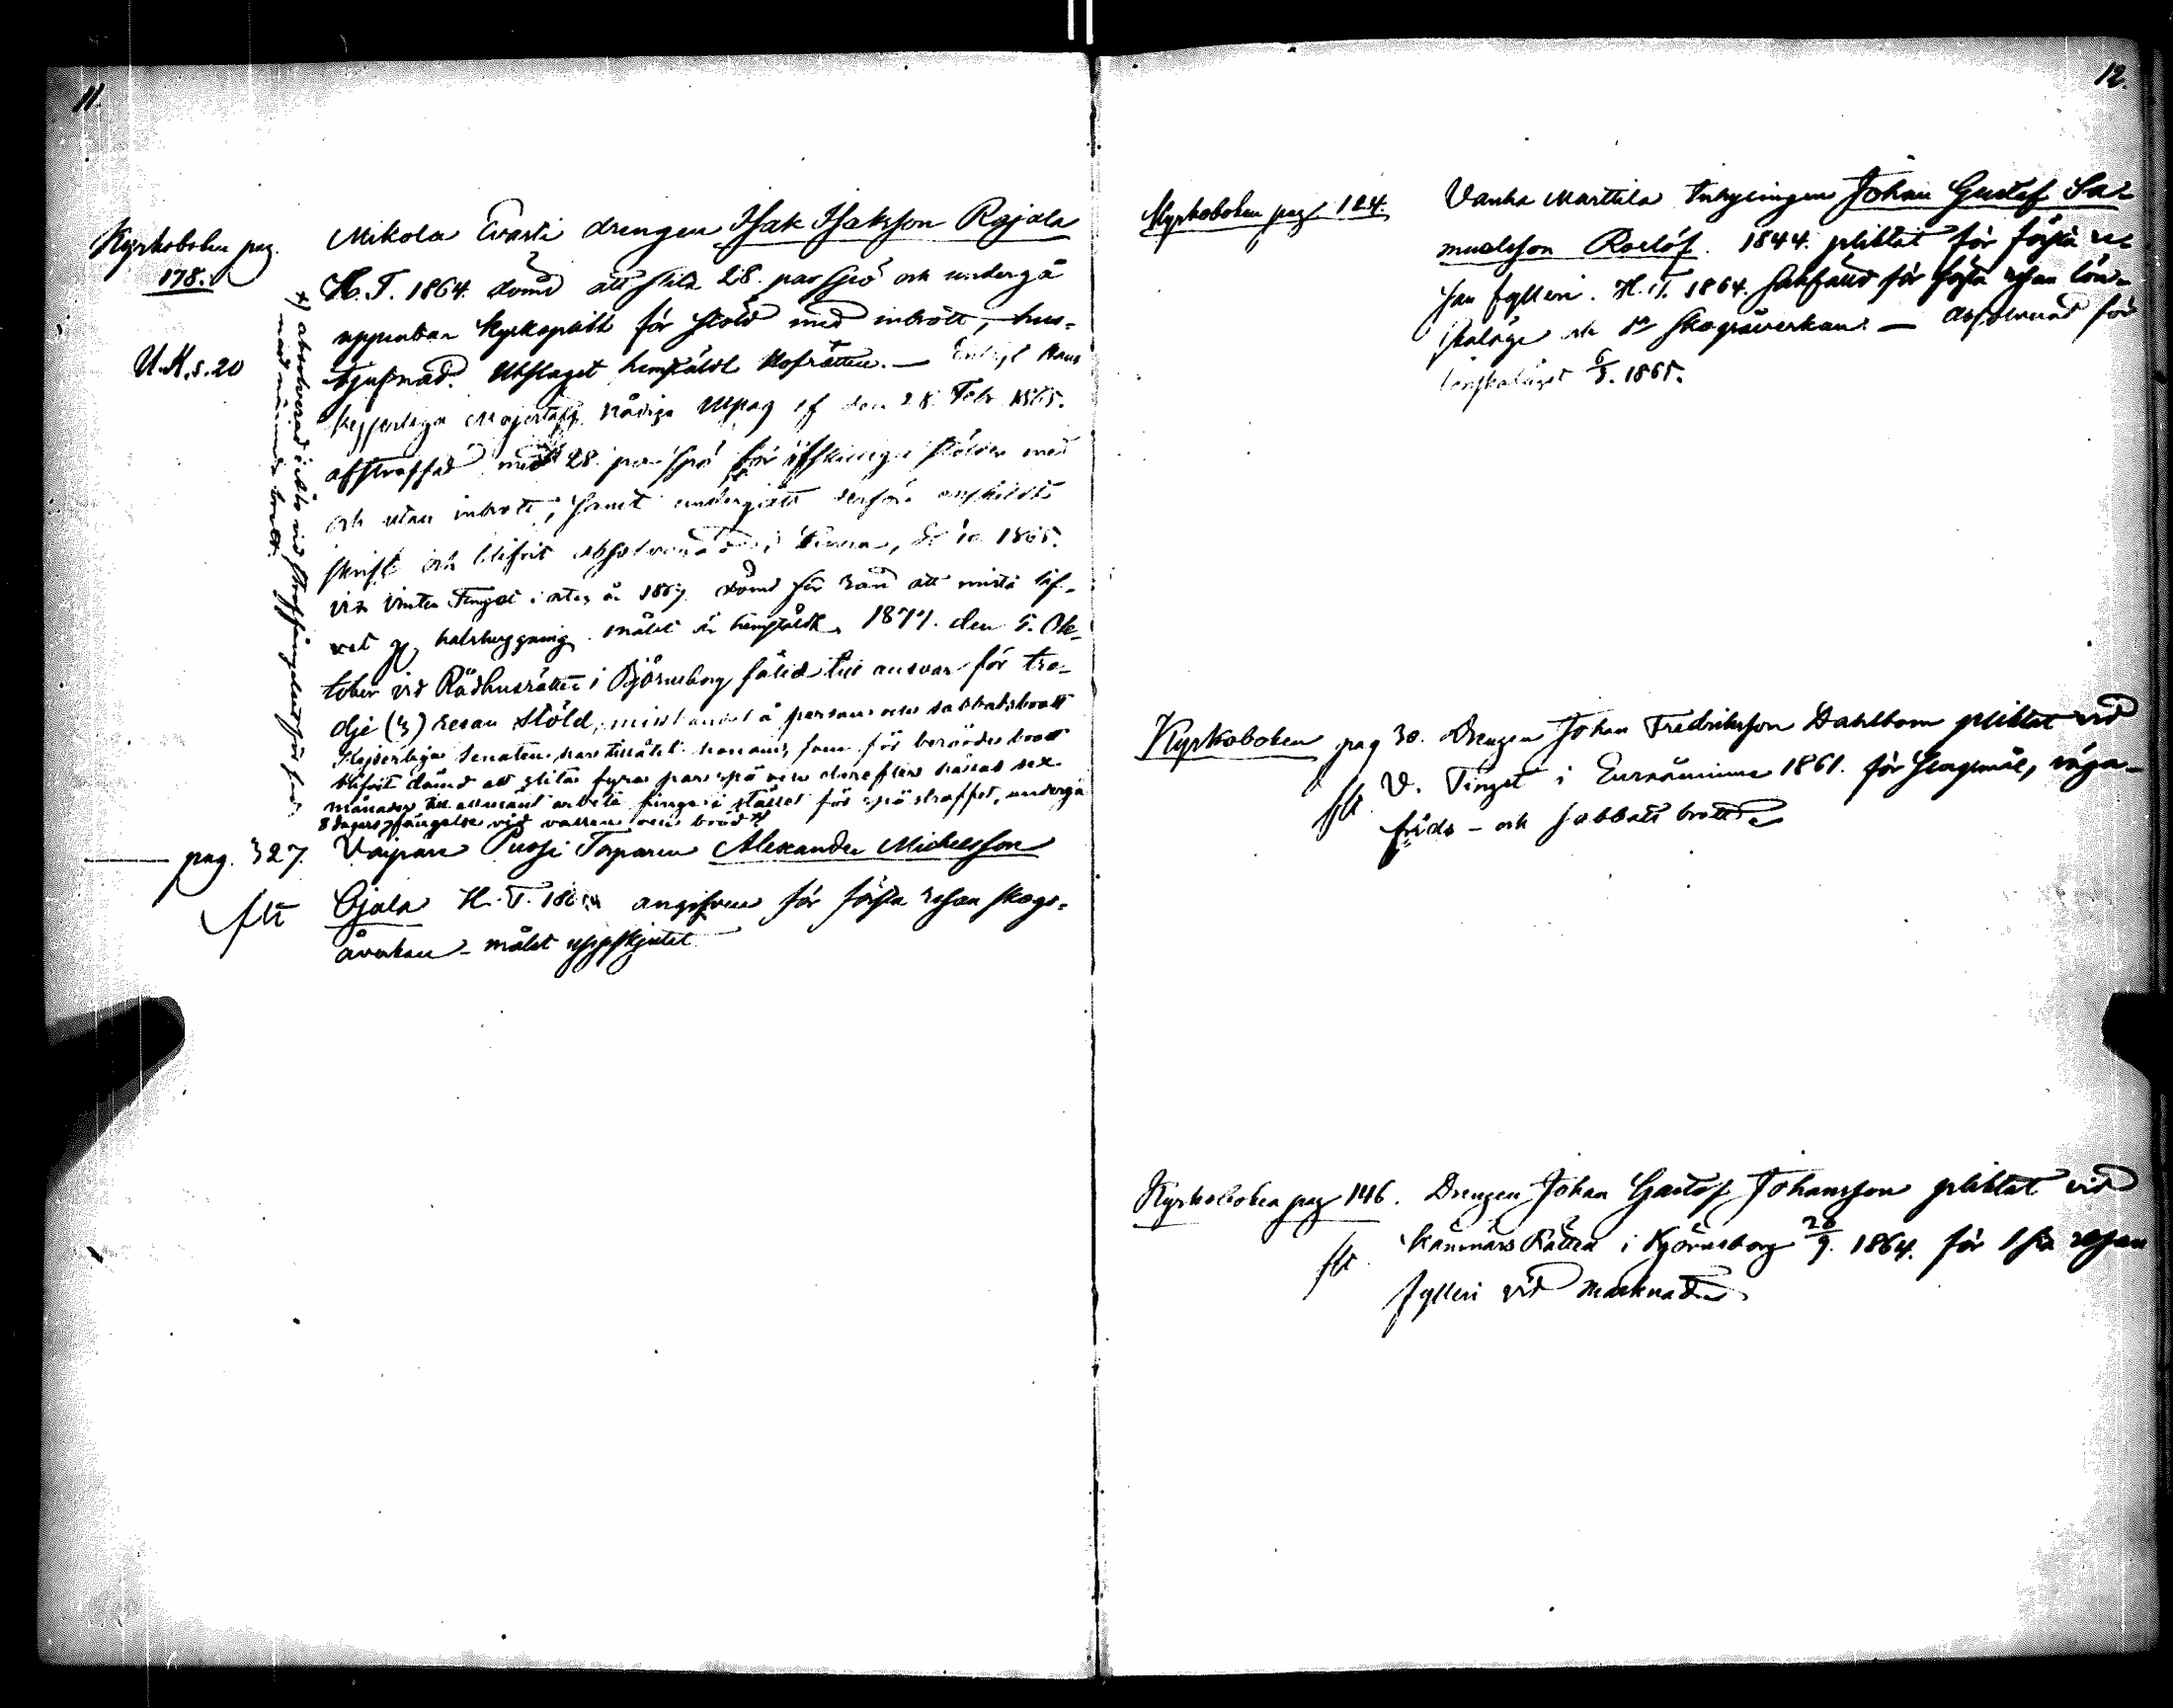 11.
Kyrkoboken pag.
178.
U.K.s.20
Mikola Evasti drengen Isak Isaksson Rajala
H.T. 1864. dömd att slita 28. par spö och undergå
uppenbar kyrkoplikt för stöld med inbrott, hus-
tjufnad. Utslaget hemstäldt Hofrätten. — Enligt Hans
Kejserliga Majestäts nådiga utslag af den 28. Febr 1865.
afstraffad med 28. par spö för åtskilliga stölder med
och utan inbrott, samt undergått derföre enskildt
skrift och blifvit absolverad 1865.
vid Vinter Tinget i år 1867. dömd för ran att mista lif-
vet gm halshuggning. målet är hemstäldt. 1877. den 5. Ok-
tober vid Rådhusrätten i Björneborg fäld till ansvar för tre-
dje (3) resan stöld, misshandel å person och sabbatsbrott
Kejserliga Senaten har tillåtit honom, som för berörde brott
blifvit dömd att slita fyra par spö och derefter hållas sex
månader till allmänt arbete finge i stället för spöstraffet, undergå
8 dagars fängelse vid vatten och bröd x)
x) absolverad i Åbo vid straffängelset för
med nämnde brott.
pag. 327.
flt
Vaipare Puosi Torparen Alexander Michelsson
Ojala H.T. angifven för första resan skogs-
åverkan – målet uppskjutet
12.
Kyrkoboken pag 124.
Vanha Marttila Inhysingen Johan Gustaf Sa-
muelsson Roslöf. 1844. pliktat för första re-
san fylleri. H.T. 1864. sakfäld för första resan lön-
skaläge och do skogsåverkan. — absolverad för
lönskaläget 6/5. 1865.
Kyrkoboken pag 30. Drengen Johan Fredriksson Dahlbom pliktat vid
flt V. Tinget i Euraåminne 1861. för slagsmål, väga-
frids- och sabbats brott
Kyrkoboken pag 146. Drengen Johan Gustaf Johansson pliktat vid
flt Kämnärs Rätten i Björneborg 26/9. 1864. för 1sta resan
fylleri vid marknad